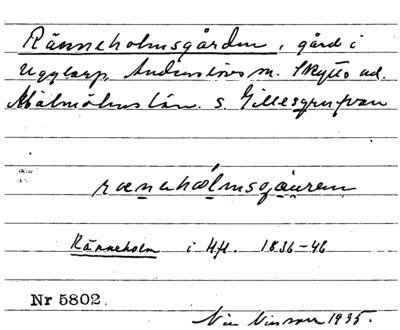 Ränneholmsgården, gård i
Ugglarp, Anderslövs sn. Skytts hd.
Malmöhus län. s. Gillesgrufvan
rænəhólmsgåuren
Ränneholm i Hfl. 1836-46
Nr 5802.
1935.